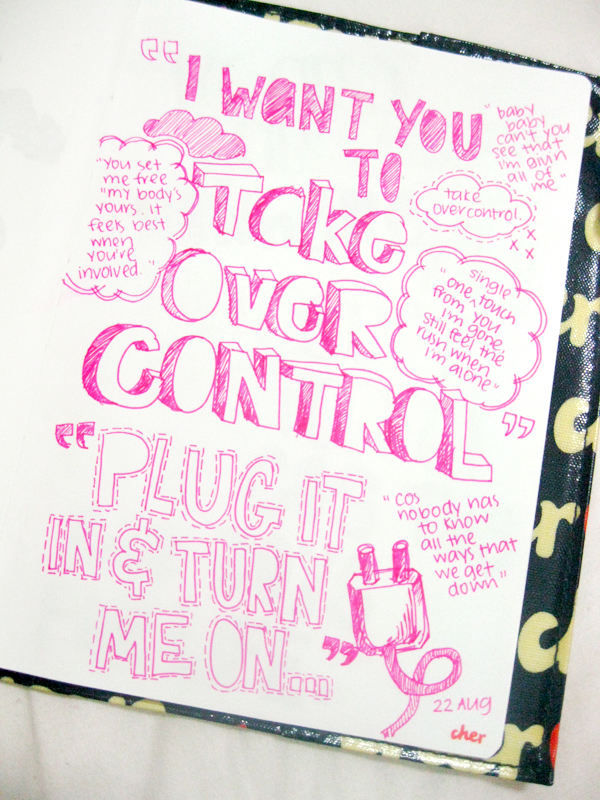 “I WANT YOU
TO
Take
OVER
CONTROL”
"baby
baby
can't you
see that
i'm givin
all of
me"
"you set
me free
"my body's
yours. it
feels best
when
you're
involved."
take
overcontrol.
x
x x
single
"one touch
from you
i'm gone
still feel the
rush when
i'm alone"
“PLUG IT
IN & TURN
ME ON...”
"cos
nobody has
to know
all the
ways that
we get
down"
22 AUG
cher